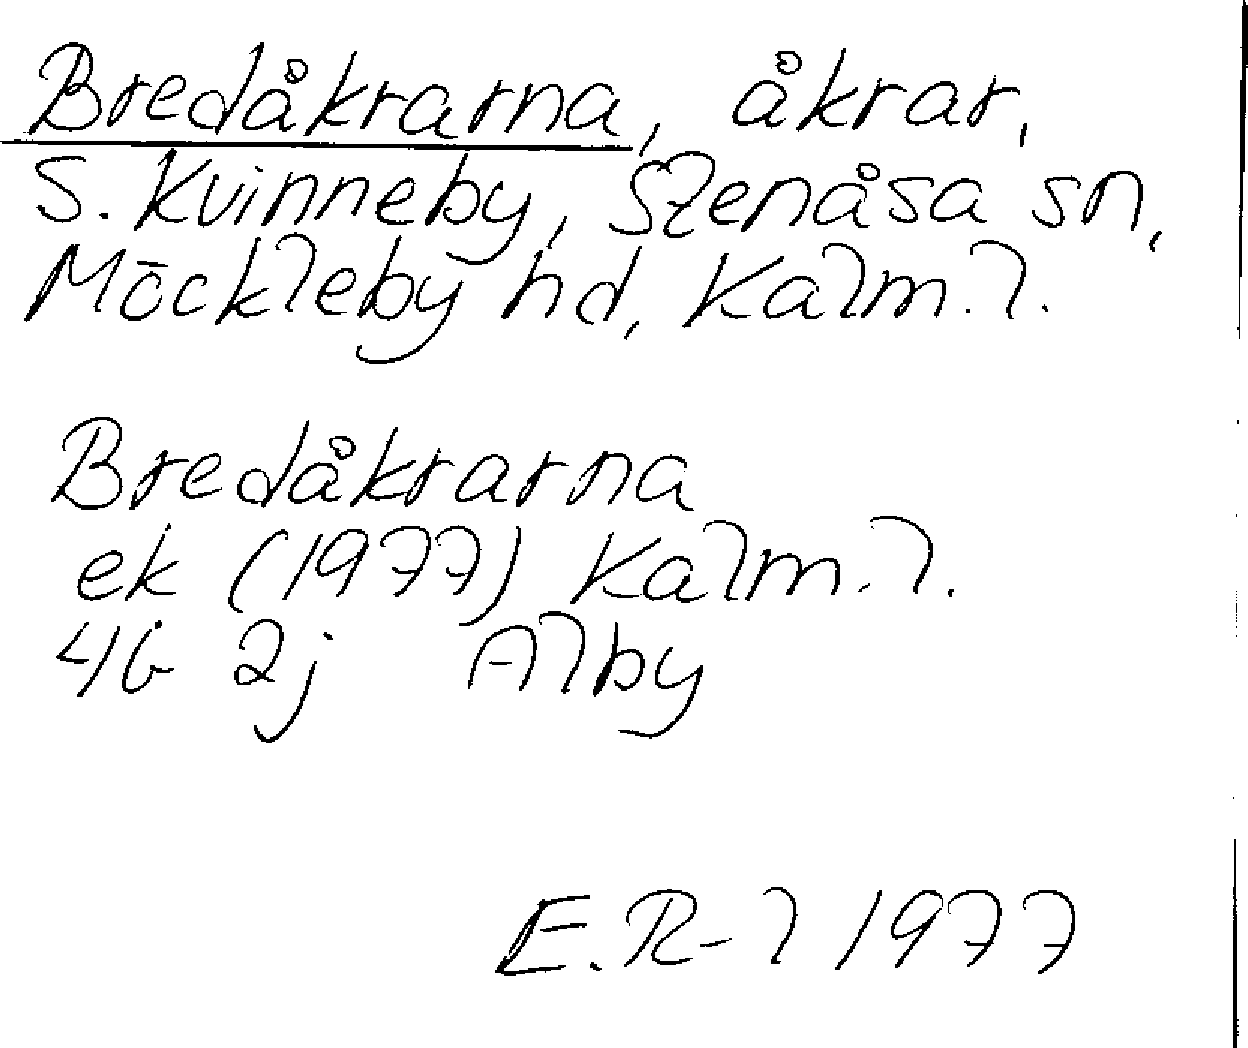 Bredåkrarna, åkrar,
S. Kvinneby, Stenåsa sn,
Möckleby hd, Kalm. l.
Bredåkrarna
ek (1977) Kalm. l.
4G 2j Alby
E. R-l 1977